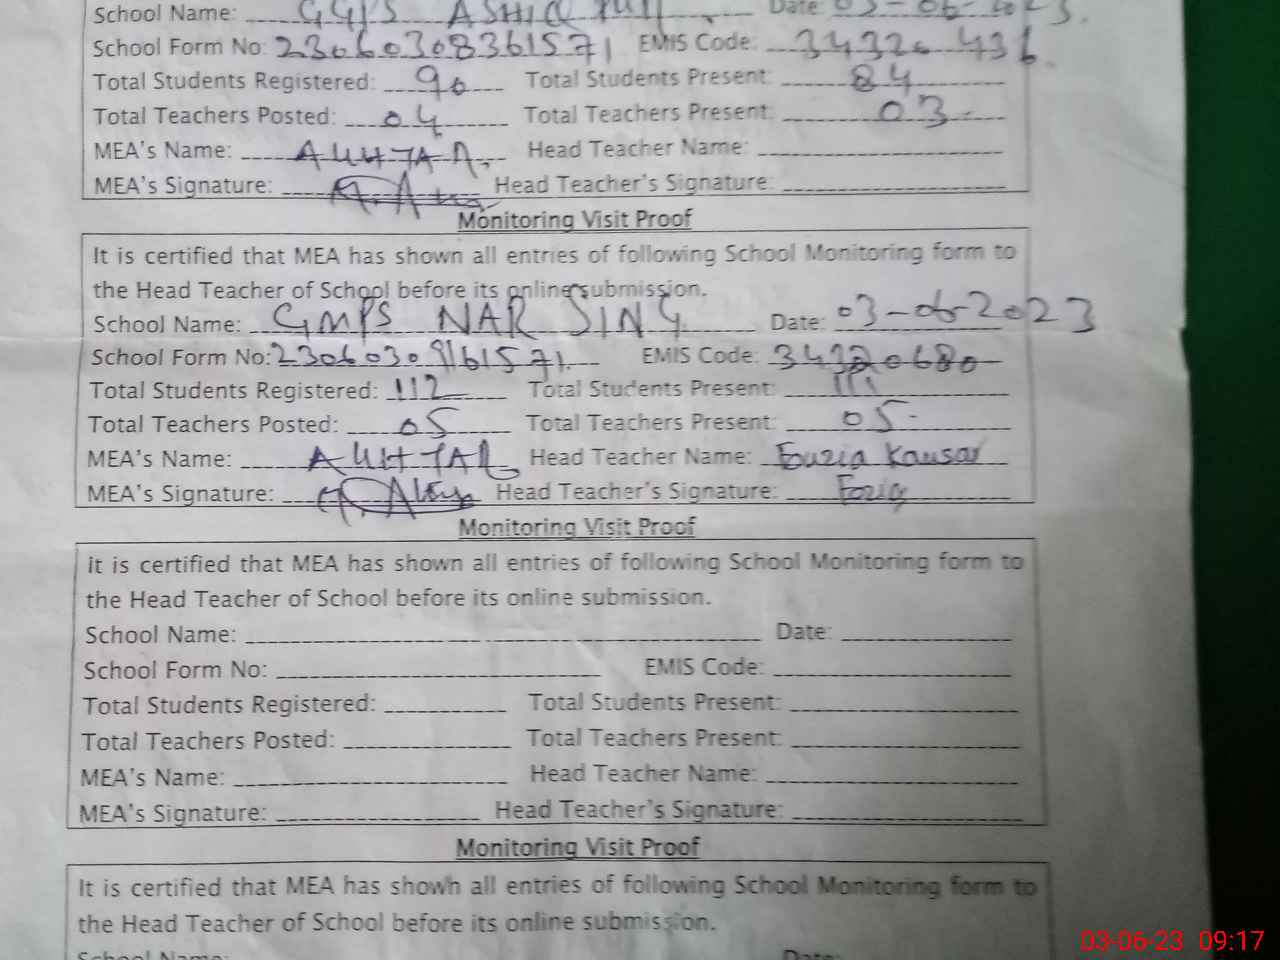 School Name: GGPS ASHIQ Date: 03-06-2023.
School Form No: 23060308361571 EMIS Code: 34320436.
Total Students Registered: 90 Total Students Present: 84
Total Teachers Posted: 04 Total Teachers Present: 03
MEA's Name: AKHTAR Head Teacher Name:
MEA's Signature: Head Teacher's Signature:
Monitoring Visit Proof
It is certified that MEA has shown all entries of following School Monitoring form to
the Head Teacher of School before its online submission.
School Name: GMPS NAR SING Date: 03-06-2023
School Form No: 23060309161571 EMIS Code: 34320680
Total Students Registered: 112 Total Students Present: 111
Total Teachers Posted: 05 Total Teachers Present: 05
MEA's Name: AKHTAR Head Teacher Name: Fouzia Kausar
MEA's Signature: Head Teacher's Signature: Fozia
Monitoring Visit Proof
It is certified that MEA has shown all entries of following School Monitoring form to
the Head Teacher of School before its online submission.
School Name: Date:
School Form No: EMIS Code:
Total Students Registered: Total Students Present:
Total Teachers Posted: Total Teachers Present:
MEA's Name: Head Teacher Name:
MEA's Signature: Head Teacher's Signature:
Monitoring Visit Proof
It is certified that MEA has shown all entries of following School Monitoring form to
the Head Teacher of School before its online submission.
School Name: Date:
03-06-23 09:17